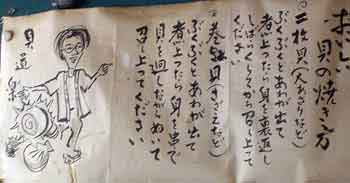 おいしい
貝の焼き方
◎二枚貝(大あさりなど)
ぶくぶくとあわが出て
煮立ったら身を裏返し
しばらくしてから召し上って
ください
◎巻貝(さざえなど)
ぶくぶくとあわが出て
煮立ったら身を串で
貝を廻しながらぬいて
召し上ってください
貝道楽